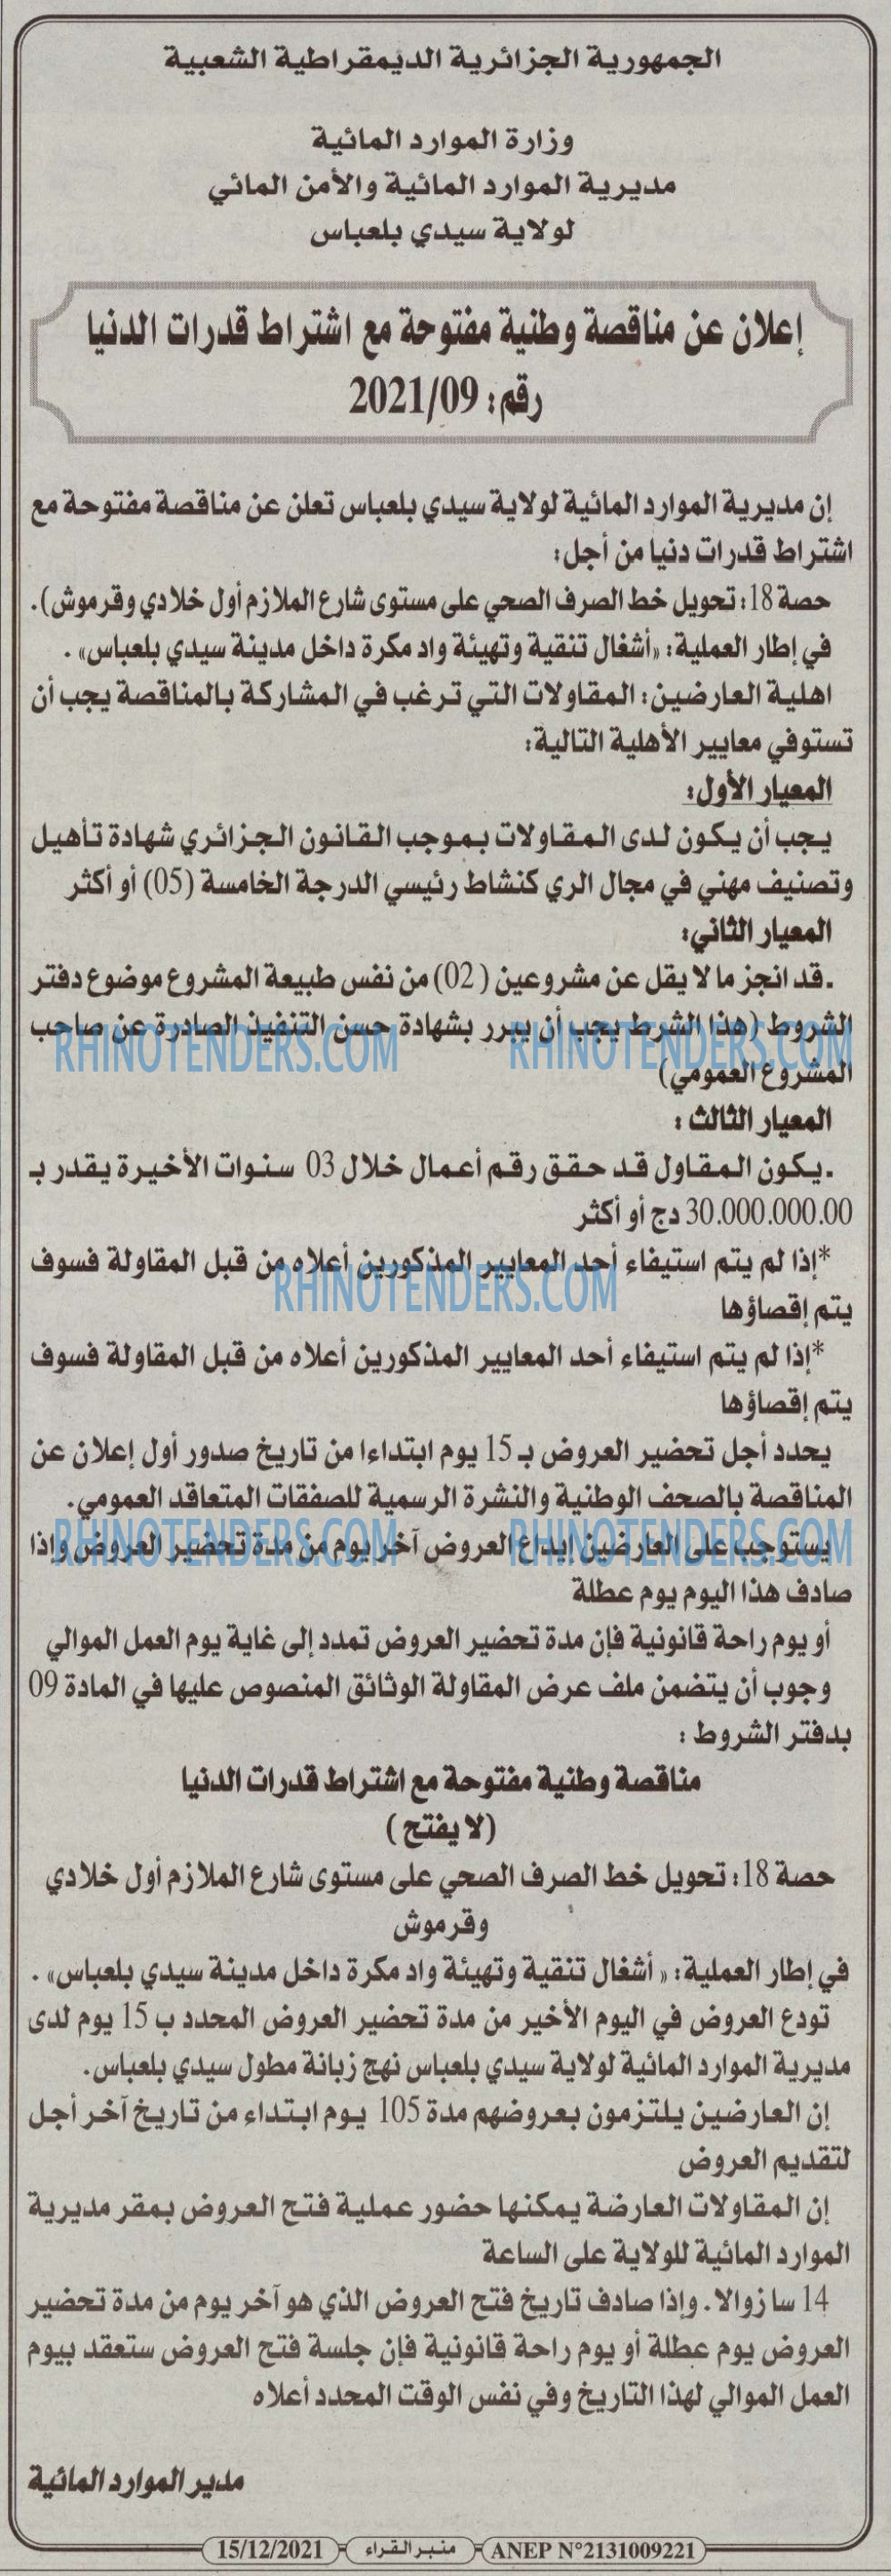 الجمهورية الجزائرية الديمقراطية الشعبية
وزارة الموارد المائية
مديرية الموارد المائية والأمن المائي
لولاية سيدي بلعباس
إعلان عن مناقصة وطنية مفتوحة مع اشتراط قدرات الدنيا
رقم: 2021/09
إن مديرية الموارد المائية لولاية سيدي بلعباس تعلن عن مناقصة مفتوحة مع
اشتراط قدرات دنيا من أجل:
حصة 18: تحويل خط الصرف الصحي على مستوى شارع الملازم أول خلادي وقرموش).
في إطار العملية: «أشغال تنقية وتهيئة واد مكرة داخل مدينة سيدي بلعباس» .
اهلية العارضين: المقاولات التي ترغب في المشاركة بالمناقصة يجب أن
تستوفي معايير الأهلية التالية:
المعيار الأول:
يجب أن يكون لدى المقاولات بموجب القانون الجزائري شهادة تأهيل
وتصنيف مهني في مجال الري كنشاط رئيسي الدرجة الخامسة (05) أو أكثر
المعيار الثاني:
.قد انجز ما لا يقل عن مشروعين (02) من نفس طبيعة المشروع موضوع دفتر
الشروط (هذا الشرط يجب أن يبرر بشهادة حسن التنفيذ الصادرة عن صاحب
RHINOTENDERS.COM RHINOTENDERS.COM
المشروع العمومي)
المعيار الثالث :
.يكون المقاول قد حقق رقم أعمال خلال 03 سنوات الأخيرة يقدر بـ
30.000.000.00 دج أو أكثر
*إذا لم يتم استيفاء أحد المعايير المذكورين أعلاه من قبل المقاولة فسوف
RHINOTENDERS.COM
يتم إقصاؤها
*إذا لم يتم استيفاء أحد المعايير المذكورين أعلاه من قبل المقاولة فسوف
يتم إقصاؤها
يحدد أجل تحضير العروض بـ 15 يوم ابتداءا من تاريخ صدور أول إعلان عن
المناقصة بالصحف الوطنية والنشرة الرسمية للصفقات المتعاقد العمومي.
يستوجب على العارضين إيداع العروض آخر يوم من مدة تحضير العروض وإذا
RHINOTENDERS.COM RHINOTENDERS.COM
صادف هذا اليوم يوم عطلة
أو يوم راحة قانونية فإن مدة تحضير العروض تمدد إلى غاية يوم العمل الموالي
وجوب أن يتضمن ملف عرض المقاولة الوثائق المنصوص عليها في المادة 09
بدفتر الشروط :
مناقصة وطنية مفتوحة مع اشتراط قدرات الدنيا
(لا يفتح )
حصة 18: تحويل خط الصرف الصحي على مستوى شارع الملازم أول خلادي
وقرموش
في إطار العملية: « أشغال تنقية وتهيئة واد مكرة داخل مدينة سيدي بلعباس» .
تودع العروض في اليوم الأخير من مدة تحضير العروض المحدد ب 15 يوم لدى
مديرية الموارد المائية لولاية سيدي بلعباس نهج زبانة مطول سيدي بلعباس.
إن العارضين يلتزمون بعروضهم مدة 105 يوم ابتداء من تاريخ آخر أجل
لتقديم العروض
إن المقاولات العارضة يمكنها حضور عملية فتح العروض بمقر مديرية
الموارد المائية للولاية على الساعة
14 سا زوالا. وإذا صادف تاريخ فتح العروض الذي هو آخر يوم من مدة تحضير
العروض يوم عطلة أو يوم راحة قانونية فإن جلسة فتح العروض ستعقد بيوم
العمل الموالي لهذا التاريخ وفي نفس الوقت المحدد أعلاه
مدير الموارد المائية
15/12/2021 منبر القراء ANEP N°2131009221